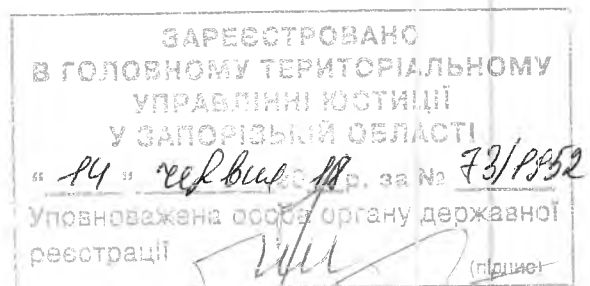 ЗАРЕЄСТРОВАНО
В ГОЛОВНОМУ ТЕРИТОРІАЛЬНОМУ
УПРАВЛІННІ ЮСТИЦІЇ
У ЗАПОРІЗЬКІЙ ОБЛАСТІ
" 14 " червня 18 р. за № 73/1952
Уповноважена особа органу державної
реєстрації
(підпис)